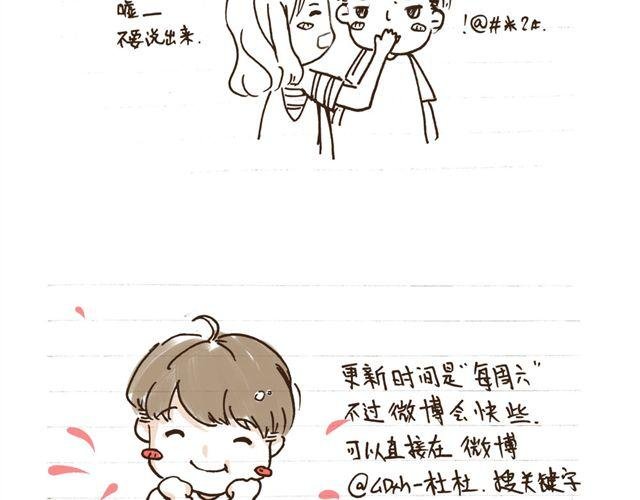 嘘—
不要说出来.
!@#*?#.
更新时间是"每周六"
不过微博会快些.
可以直接在 微博
杜杜. 搜关键字